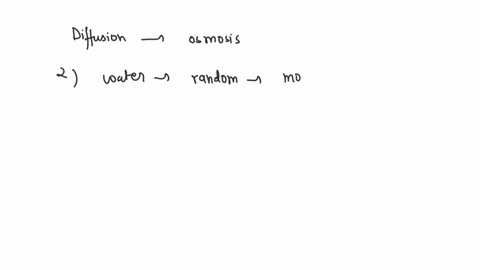 Diffusion → osmosis
2) water → random → mo